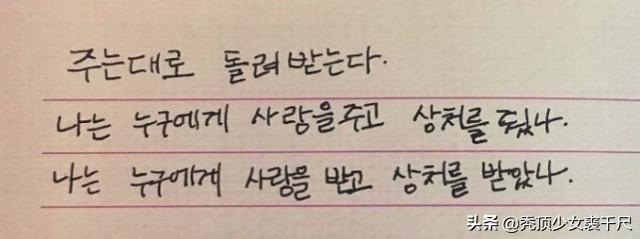 주는대로 돌려받는다.
나는 누구에게 사랑을주고 상처를 됬나.
나는 누구에게 사랑을 받고 상처를 받았나.
头条 @秃顶少女裘千尺